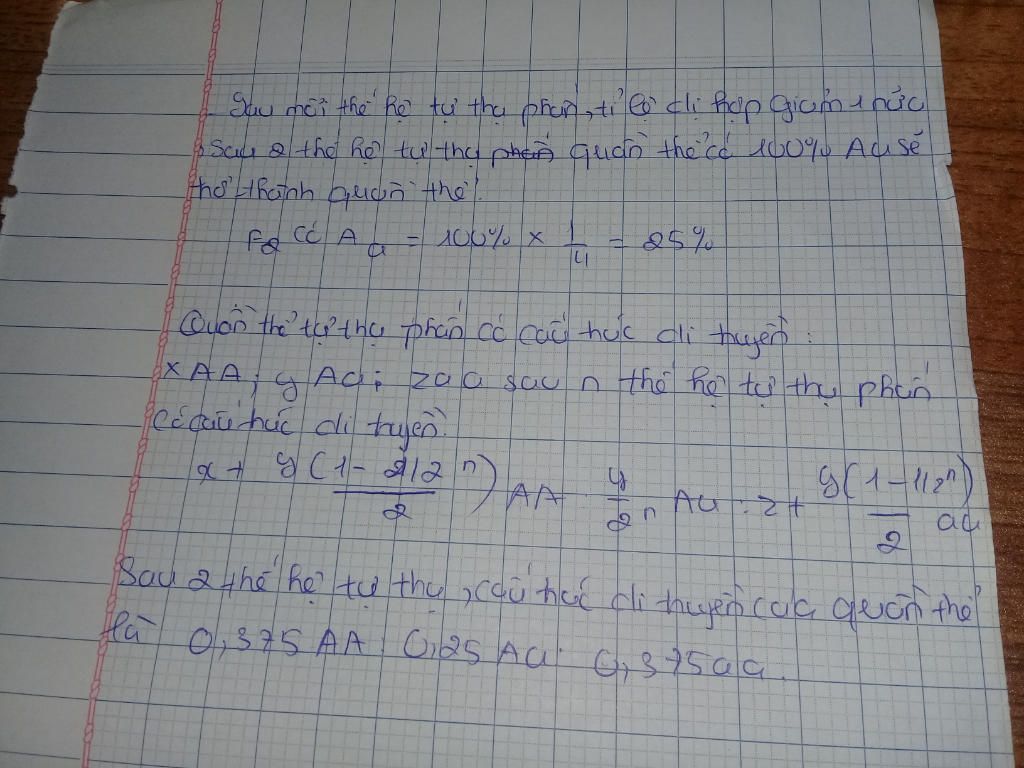 Sau mỗi thế hệ tự thụ phấn, tỉ lệ dị hợp giảm 1 nửa
Sau 2 thế hệ tự thụ phấn quần thể có 100% Aa sẽ
thành quần thể:
F2 có Aa = 100% × 1/4 = 25%
Quần thể tự thụ phấn có cấu trúc di truyền:
xAA; yAa; zaa sau n thế hệ tự thụ phấn
có cấu trúc di truyền.
x + y(1 - 2/2^n)/2 AA y/2^n Aa : z + y(1 - 1/2^n)/2 aa
Sau 2 thế hệ tự thụ, cấu trúc di truyền của quần thể
là 0,375 AA: 0,25 Aa: 0,375aa.